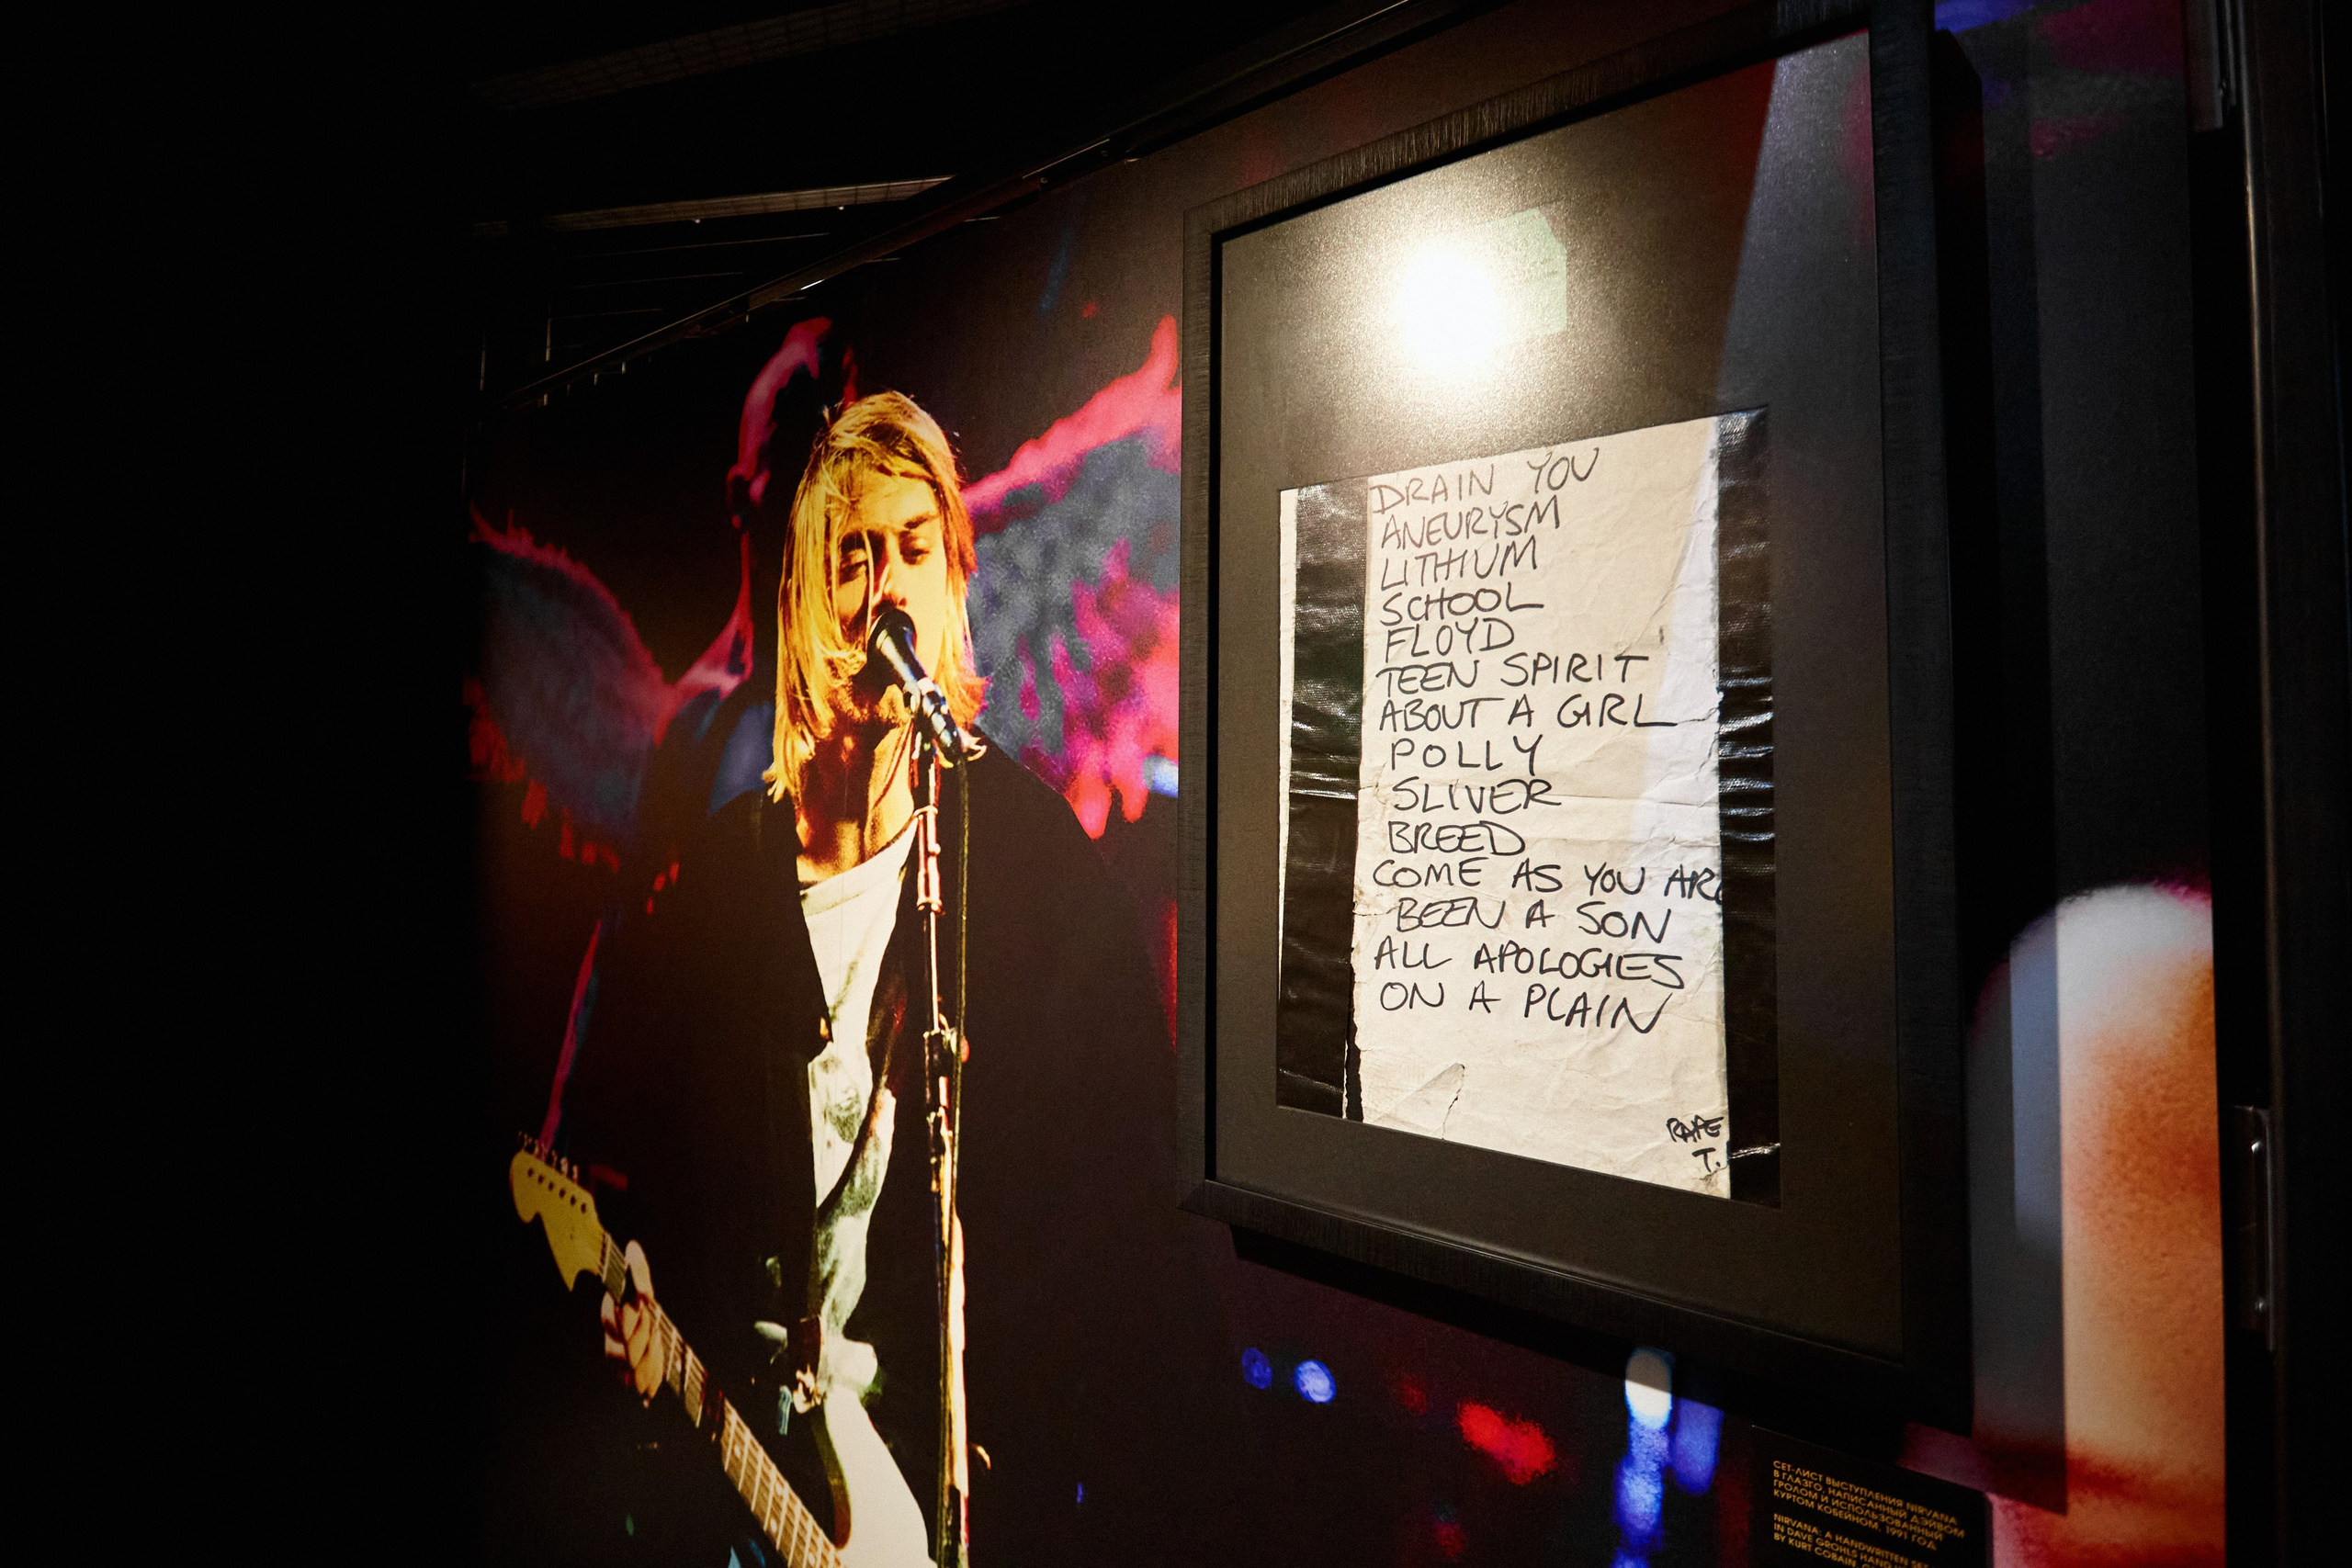 DRAIN YOU
ANEURYSM
LITHIUM
SCHOOL
FLOYD
TEEN SPIRIT
ABOUT A GIRL
POLLY
SLIVER
BREED
COME AS YOU ARE
BEEN A SON
ALL APOLOGIES
ON A PLAIN
RAPE
T.
СЕТ-ЛИСТ ВЫСТУПЛЕНИЯ NIRVANA
В ГЛАЗГО, НАПИСАННЫЙ ДЭЙВОМ
ГРОЛОМ И ИСПОЛЬЗОВАННЫЙ
КУРТОМ КОБЕЙНОМ, 1991 ГОД
NIRVANA: A HANDWRITTEN SET
IN DAVE GROHL'S HAND
BY KURT COBAIN,